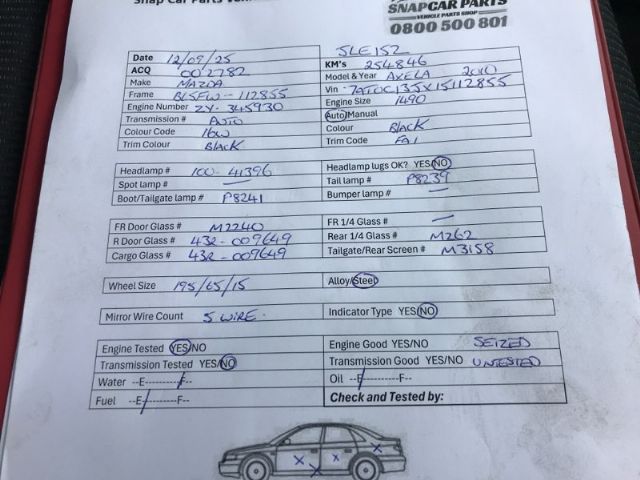 Snap Car Parts
SNAPCAR PARTS
VEHICLE PARTS SHOP
0800 500 801
SLE152
Date 12/09/25 KM's 254846
ACQ 002782 Model & Year AXELA 2010
Make MAZDA Vin 7AT0C13JX15112855
Frame BL5FW-112855 Engine Size 1490
Engine Number ZY-345930 Auto/Manual
Transmission # AUTO Colour BLACK
Colour Code 16W Trim Code FA1
Trim Colour BLACK
Headlamp # 100-41396 Headlamp lugs OK? YES/NO
Spot lamp # — Tail lamp # P8239
Boot/Tailgate lamp # P8241 Bumper lamp # —
FR Door Glass # M2240 FR 1/4 Glass # —
R Door Glass # 43R-009649 Rear 1/4 Glass # M262
Cargo Glass # 43R-009649 Tailgate/Rear Screen # M3158
Wheel Size 195/65/15 Alloy/Steel
Mirror Wire Count 5 WIRE. Indicator Type YES/NO
Engine Tested YES/NO Engine Good YES/NO SEIZED
Transmission Tested YES/NO Transmission Good YES/NO UNTESTED
Water --E---------F-- Oil --E---------F--
Fuel --E---------F-- Check and Tested by: